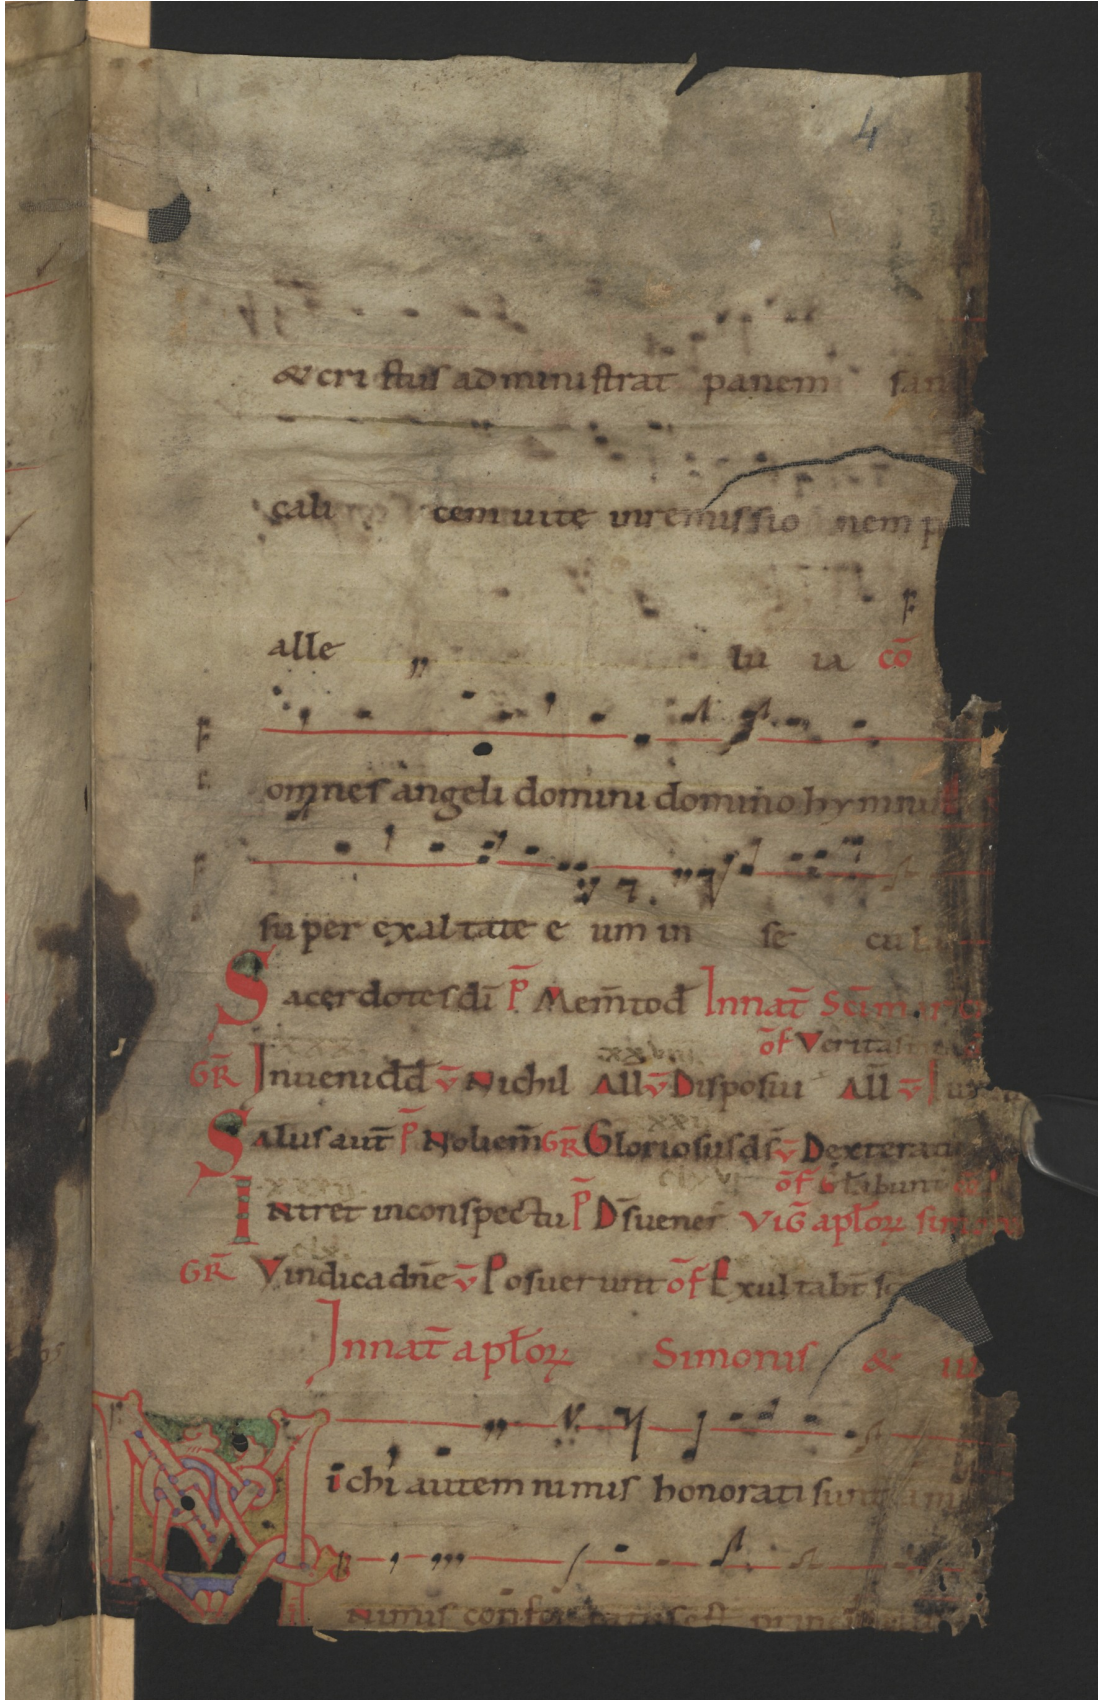 4
& cristus administrat panem san
cali cem uitę inremissio nem p
alle lu ia cō
omnes angeli domini domino hymnu
super exaltate e um in se cula
Sacerdotes dī P̄ Mem̄to d̄ In nat̄ Sc̄i marci
of̄ Veritas
GR̄ Inueni d̄d v̄ Nichil All v̄ Disposui All̄ v̄ Iura
Salus aut̄ P̄ Noli em̄ GR̄ Gloriosus ds̄ v̄ Dextera tu
of̄
Intret in conspectu P̄ D̄s uener̄ ViḠ apl̄oꝝ simo
GR̄ Vindica dn̄e v̄ Posuerunt of̄ Exultabt̄ sc
In nat̄ apl̄oꝝ Simonis & iu
Michi autem nimis honorati sunt ami
nimis confor tatus est princi